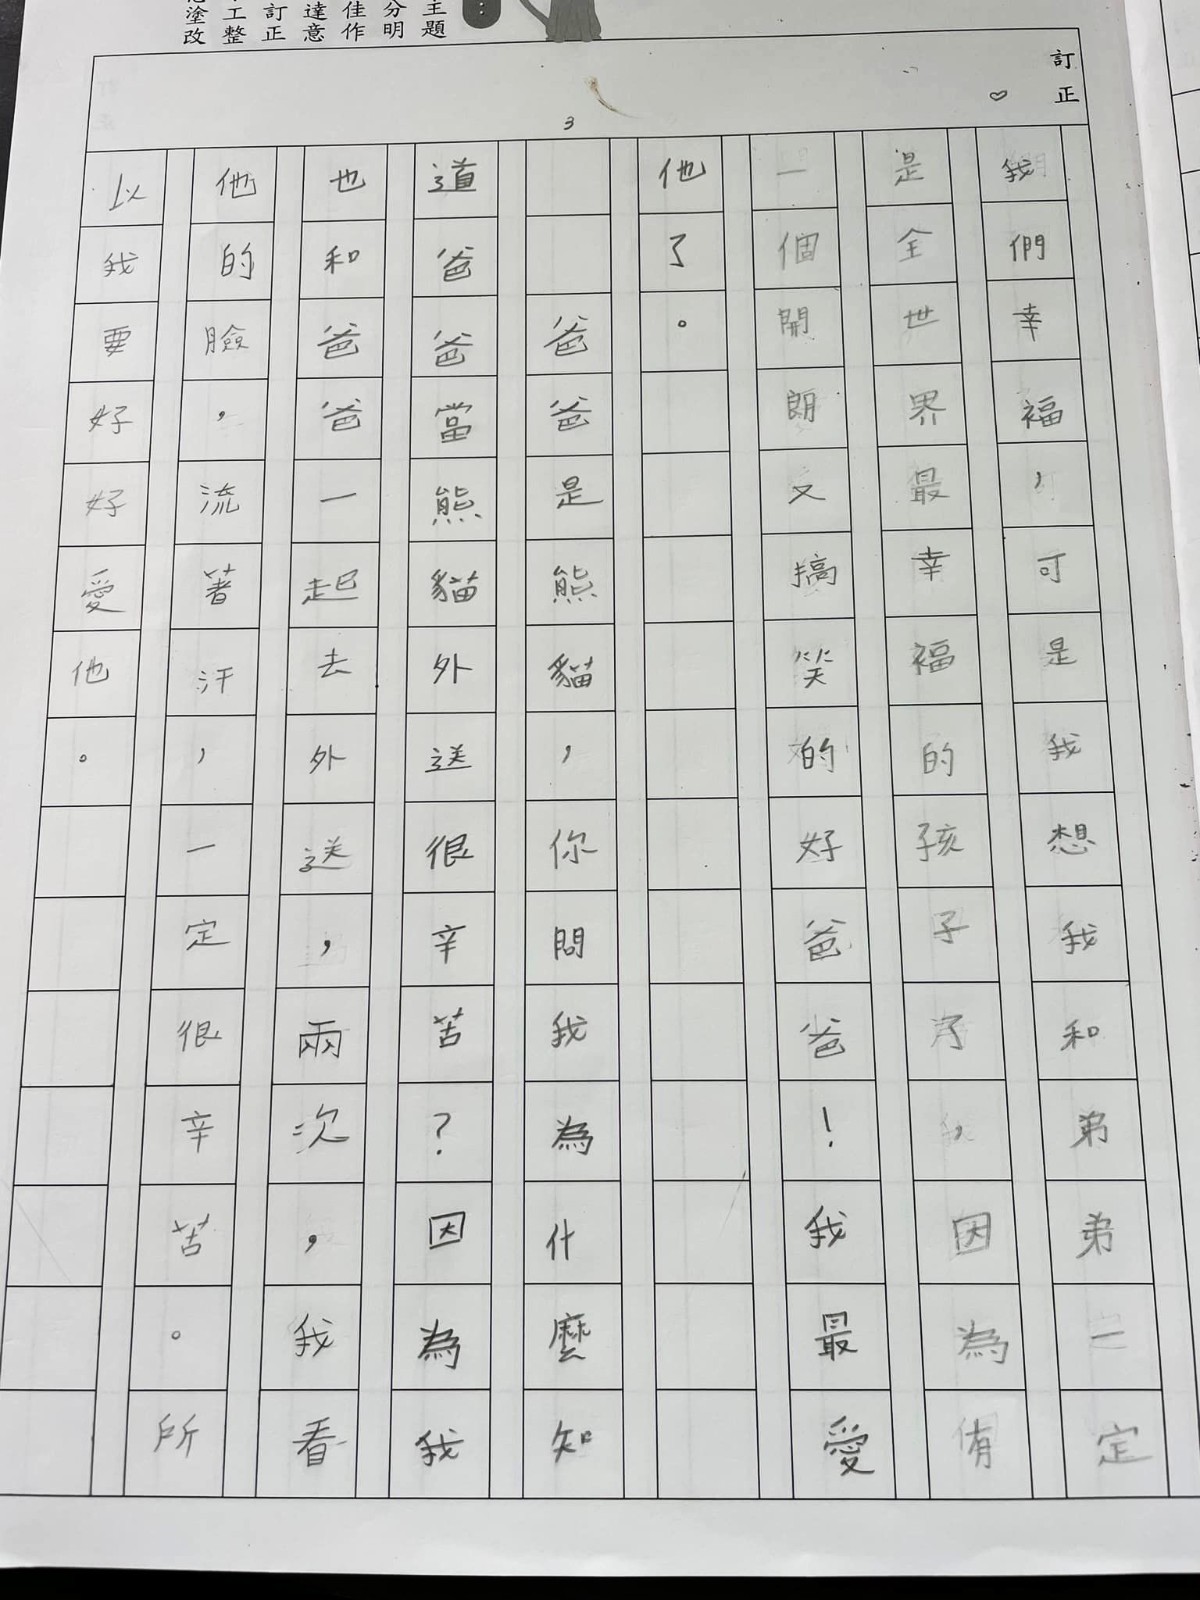 主題
分明
佳作
達意
訂正
工整
塗改
訂正
3
我們幸福，可是我想我和弟弟一定
是全世界最幸福的孩子了，因為有
一個開朗又搞笑的好爸爸！我最愛
他了。
爸爸是熊貓，你問我為什麼知
道爸爸當熊貓外送很辛苦？因為我
也和爸爸一起去外送，兩次，我看
他的臉，流著汗，一定很辛苦。所
以我要好好愛他。